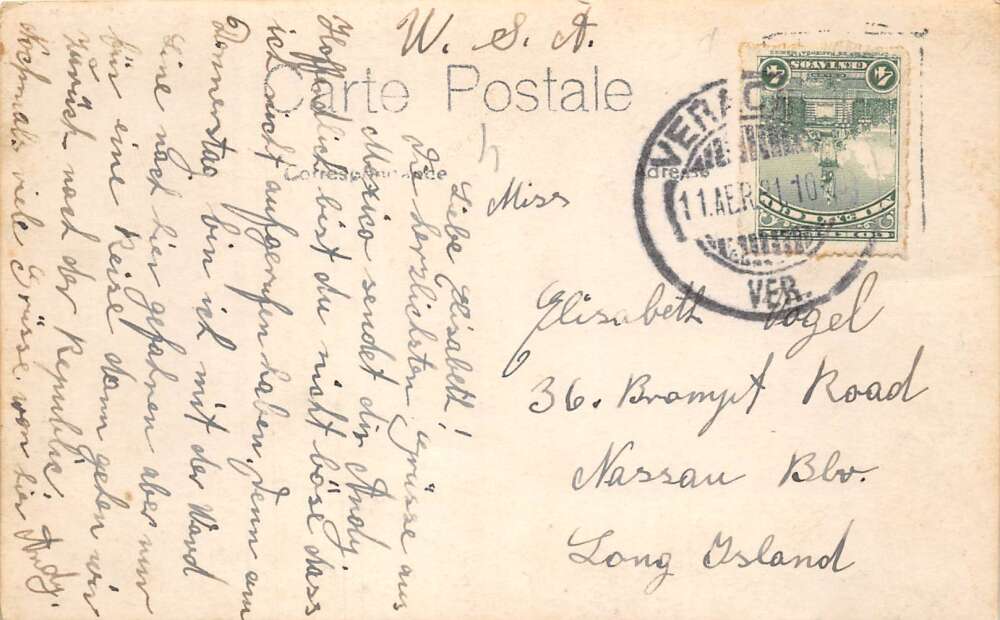 W. S. A.
Carte Postale
Correspondance
Adresse
Liebe Elisabeth!
Die herzlichsten Grüsse aus
Mexico sendet dir Andy.
Hoffendlich bist du nicht böse dass
ich nicht aufgerufen haben, denn am
Donnerstag bin ich mit der Ward
Line nach hier gefahren aber nur
für eine Reise dann gehen wir
zurück nach der Republic.
Nochmals viele Grüsse von hier Andy.
Miss
Elisabeth Vogel
36. Brompt Road
Nassau Blv.
Long Island
4 CENTAVOS 4
MEXICO
VERAC
11.AER. 10
VER.